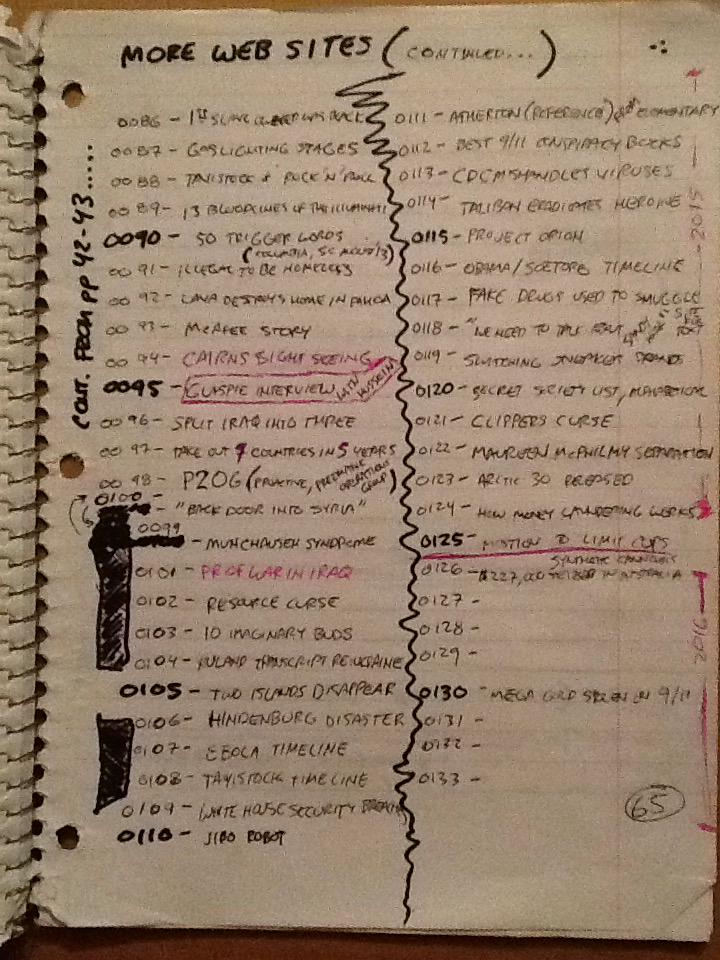 MORE WEB SITES (CONTINUED...)
CONT. FROM PP 42-43.....
0086 - 1ST SLAVE OWNER WAS BLACK
0087 - GASLIGHTING STAGES
0088 - TAVISTOCK & ROCK 'N' ROLL
0089 - 13 BLOODLINES OF THE ILLUMINATI
0090 - 50 TRIGGER WORDS
(COLUMBIA, SC
0091 - ILLEGAL TO BE HOMELESS
0092 - LAVA DESTROYS HOME IN PAHOA
0093 - McAFEE STORY
0094 - CAIRNS SIGHT SEEING
0095 - GLASPIE INTERVIEW WITH HUSSEIN
0096 - SPLIT IRAQ INTO THREE
0097 - TAKE OUT 7 COUNTRIES IN 5 YEARS
0098 - P2OG (PROACTIVE, PREEMPTIVE OPERATIONS GROUP)
0100 - "BACK DOOR INTO SYRIA"
0099 - MUNCHAUSEN SYNDROME
0101 - PROF WAR IN IRAQ
0102 - RESOURCE CURSE
0103 - 10 IMAGINARY BUDS
0104 - NULAND TRANSCRIPT RE: UKRAINE
0105 - TWO ISLANDS DISAPPEAR
0106 - HINDENBURG DISASTER
0107 - EBOLA TIMELINE
0108 - TAVISTOCK TIMELINE
0109 - WHITE HOUSE SECURITY BREACH
0110 - JIBO ROBOT
0111 - ATHERTON (REFERENCE) ELEMENTARY
0112 - BEST 9/11 CONSPIRACY BOOKS
0113 - CDC MISHANDLES VIRUSES
0114 - TALIBAN ERADICATES HEROINE
0115 - PROJECT ORION
0116 - OBAMA/SOETORO TIMELINE
0117 - FAKE DRUGS USED TO SMUGGLE
0118 - "WE NEED TO TALK ABOUT TEXT
0119 - SWITCHING SNEAKER BRANDS
0120 - SECRET SOCIETY LIST, ALPHABETICAL
0121 - CLIPPERS CURSE
0122 - MAUREEN McPHILMY SEPARATION
0123 - ARCTIC 30 RELEASED
0124 - HOW MONEY LAUNDERING WORKS
0125 - MOTION TO LIMIT COPS
SYNTHETIC CANNABIS
0126 - $227,000 SEIZED IN AUSTRALIA
0127 -
0128 -
0129 -
0130 - MEGA GOLD STOLEN ON 9/11
0131 -
0132 -
0133 -
2015
2016
65